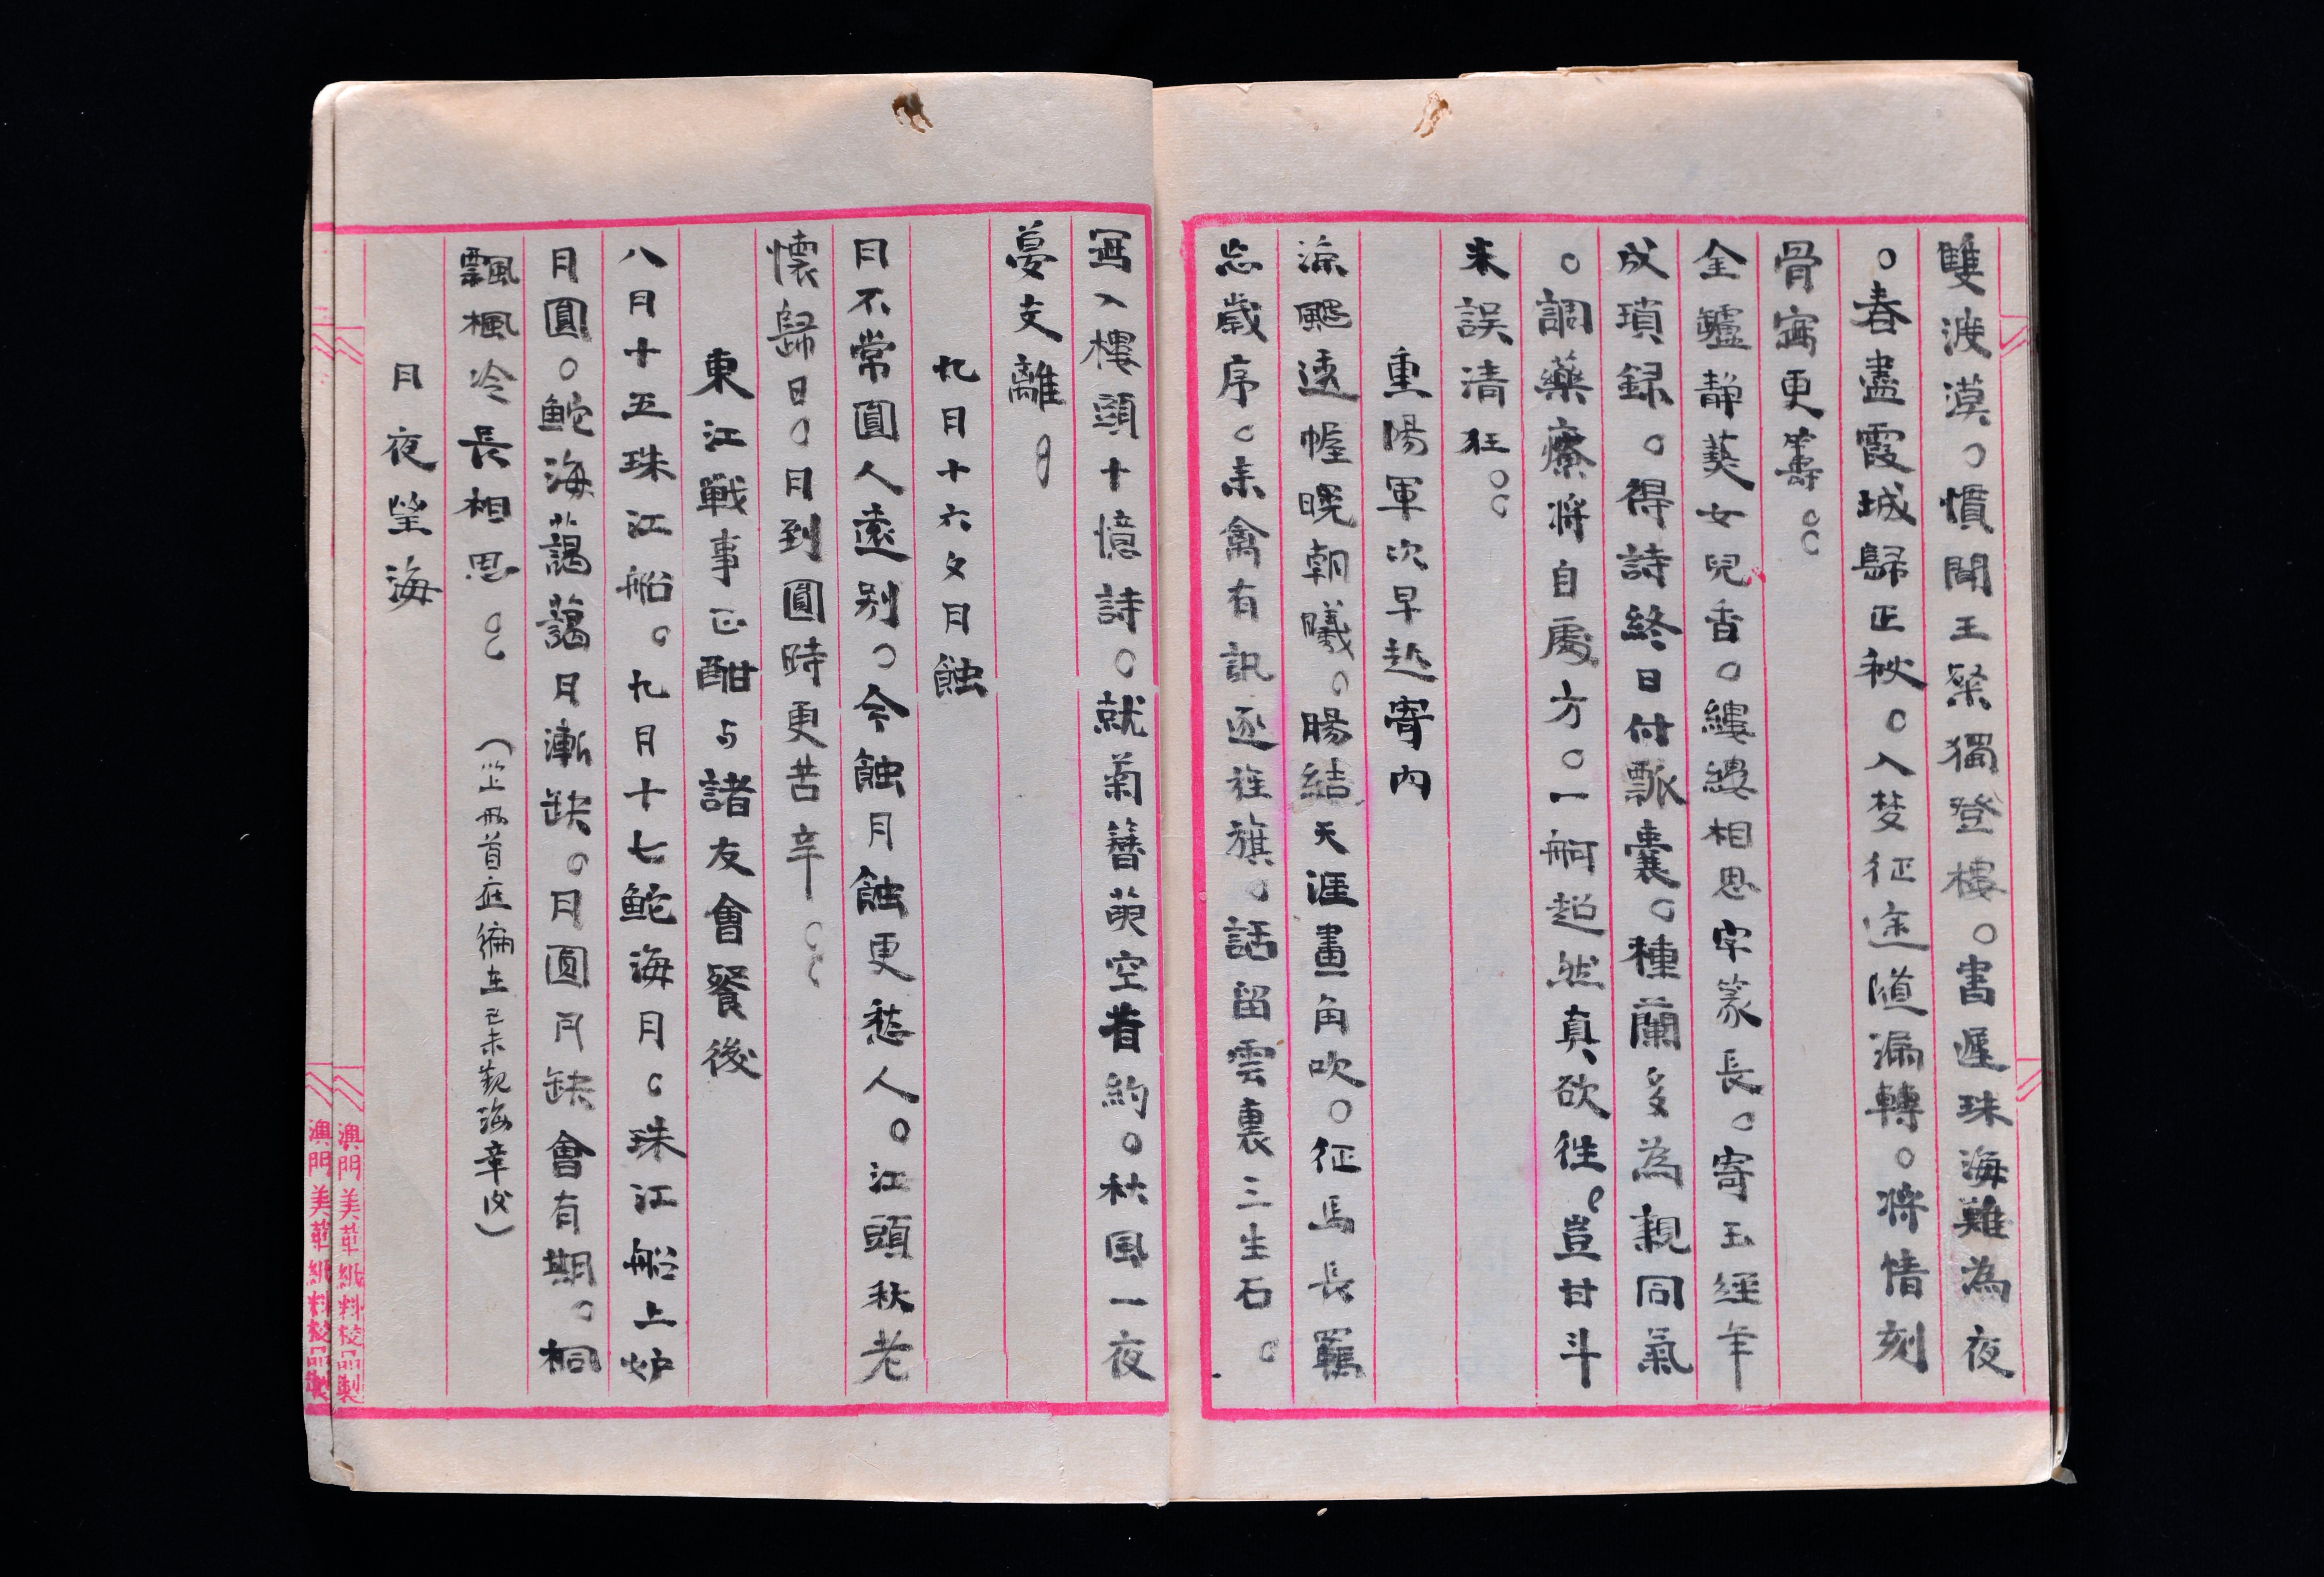 雙渡漠。慣聞王粲獨登樓。書遲珠海難為夜
。春盡霞城歸正秋。入梦征途隨漏轉。將情刻
骨寫更籌。。
金鑪静爇女兒香。縷縷相思字篆長。寄玉經年
成瑣録。得詩終日付瓢囊。種蘭多為親同氣
。調藥療將自處方。一舸超然真欲往。豈甘斗
米誤清狂。。
重陽軍次早起寄内
涼颸透幄晚朝曦。腸結天涯畫角吹。征馬長羈
忘歲序。来禽有訊逐旌旗。話留雲裏三生石。
寫入樓頭十憶詩。就菊簪萸空眷約。秋風一夜
夢支離。。
九月十六夕月蝕
月不常圓人遠别。今蝕月蝕更愁人。江頭秋老
懷歸日。月到圓時更苦辛。。
東江戰事正酣与諸友會餐後
八月十五珠江船。九月十七鮀海月。珠江船上妒
月圓。鮀海蔼蔼月漸缺。月圓月缺會有期。桐
飄楓冷長相思。。（以上兩首应编在己未觀海章後）
月夜望海
澳門美華紙料校品製
澳門美華紙料校品製